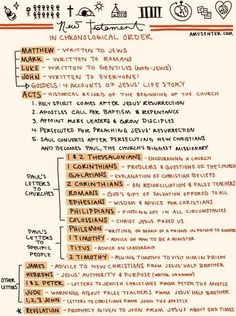 New Testament
IN CHRONOLOGICAL ORDER
AMYSENTER.COM
MATTHEW - WRITTEN TO JEWS
MARK - WRITTEN TO ROMANS
LUKE - WRITTEN TO GENTILES (NON-JEWS)
JOHN - WRITTEN TO EVERYONE!
GOSPELS: 4 ACCOUNTS OF JESUS' LIFE STORY
ACTS - HISTORICAL RECORD OF THE BEGINNING OF THE CHURCH
1. HOLY SPIRIT COMES AFTER JESUS' RESURRECTION
2. APOSTLES CALL FOR BAPTISM & REPENTANCE
3. APPOINT MORE LEADERS & GROW DISCIPLES
4. PERSECUTED FOR PREACHING JESUS' RESURRECTION
5. SAUL CONVERTS AFTER PERSECUTING NEW CHRISTIANS
AND BECOMES PAUL, THE CHURCH'S BIGGEST MISSIONARY
PAUL'S LETTERS TO CHURCHES
1 & 2 THESSALONIANS - ENCOURAGING A CHURCH
1 CORINTHIANS - PROBLEMS & QUESTIONS OF THE CHURCH
GALATIANS - EXPLANATION OF CHRISTIAN BELIEFS
2 CORINTHIANS - ON RECONCILIATION & FALSE TEACHERS
ROMANS - GOD'S GIFT OF SALVATION OFFERED TO ALL
EPHESIANS - WISDOM & ADVICE FOR CHRISTIANS
PHILIPPIANS - FINDING JOY IN ALL CIRCUMSTANCES
COLOSSIANS - CHRIST JESUS PAIRED US
PAUL'S LETTERS TO SPECIFIC PEOPLE
PHILEMON - WRITTEN ON BEHALF OF A FRIEND IN PRISON TO
1 TIMOTHY - ADVICE ON HOW TO BE A MINISTER
TITUS - ADVICE ON LEADERSHIP
2 TIMOTHY - ASKING TIMOTHY TO VISIT HIM IN PRISON
OTHER LETTERS
JAMES - ADVICE TO NEW CHRISTIANS FROM JESUS' HALF BROTHER
HEBREWS - JESUS' AUTHORITY & PURPOSE
1 & 2 PETER - LETTERS TO JEWISH CHRISTIANS FROM PETER THE APOSTLE
JUDE - WARNINGS ABOUT FALSE TEACHERS FROM JESUS' HALF BROTHER
1, 2, 3 JOHN - LETTERS TO CHRISTIANS FROM JOHN THE APOSTLE
REVELATION - PROPHECY GIVEN TO JOHN FROM JESUS ABOUT END TIMES